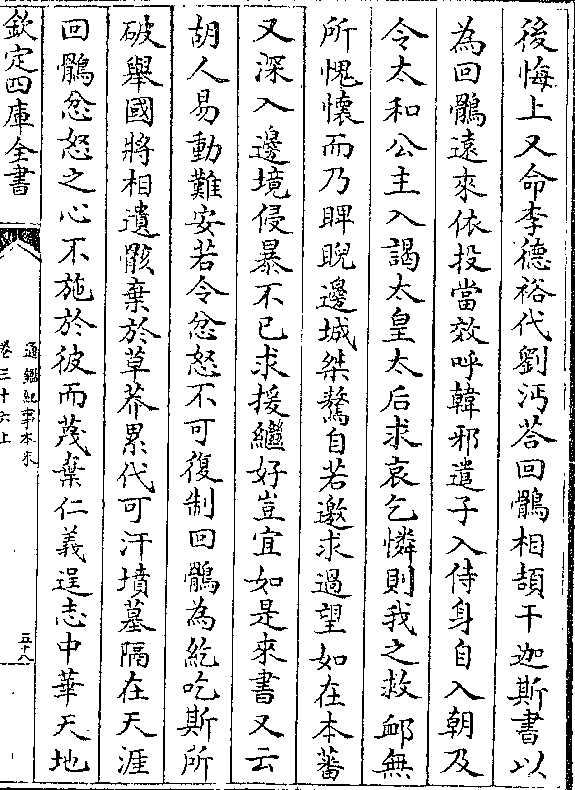 後悔上又命李德裕代劉沔荅回鶻相頡干迦斯書以
為回鶻遠來依投當效呼韓邪遣子入侍身自入朝及
令太和公主入謁太皇太后求哀乞憐則我之救䘏無
所愧懷而乃睥睨邊城桀驁自若邀求過望如在本蕃
又深入邊境侵暴不已求援繼好豈宜如是來書又云
胡人易動難安若令忿怒不可復制回鶻為紇吃斯所
破舉國將相遺骸棄於草莽累代可汗墳墓隔在天涯
回鶻忿怒之心不施於彼而蔑棄仁義逞志中華天地
欽定四庫全書
通鑑紀事本末
卷三十六上
五十八